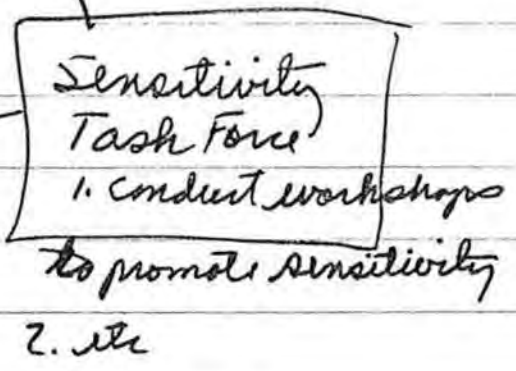 Sensitivity
Task Force
1. Conduct workshops
to promote sensitivity
2. etc